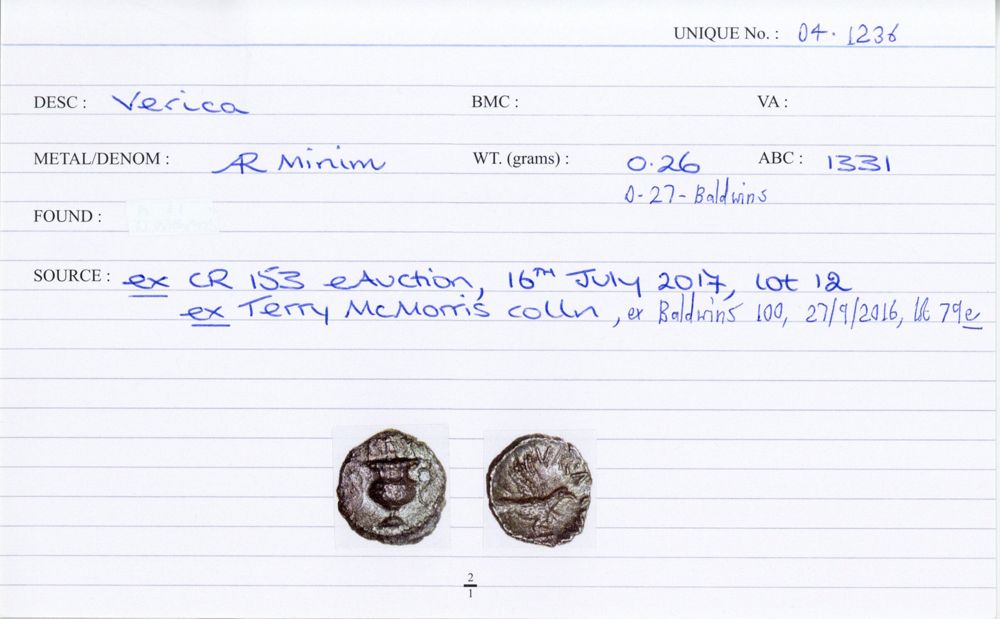 UNIQUE No. : 04.1236
DESC : Verica BMC : VA :
METAL/DENOM : AR Minim WT. (grams) : 0.26 ABC : 1331
0-27-Baldwins
FOUND :
SOURCE : ex CR 153 eAuction, 16TH July 2017, lot 12
ex Terry McMorris colln, ex Baldwins 100, 27/9/2016, lot 79e
2
1